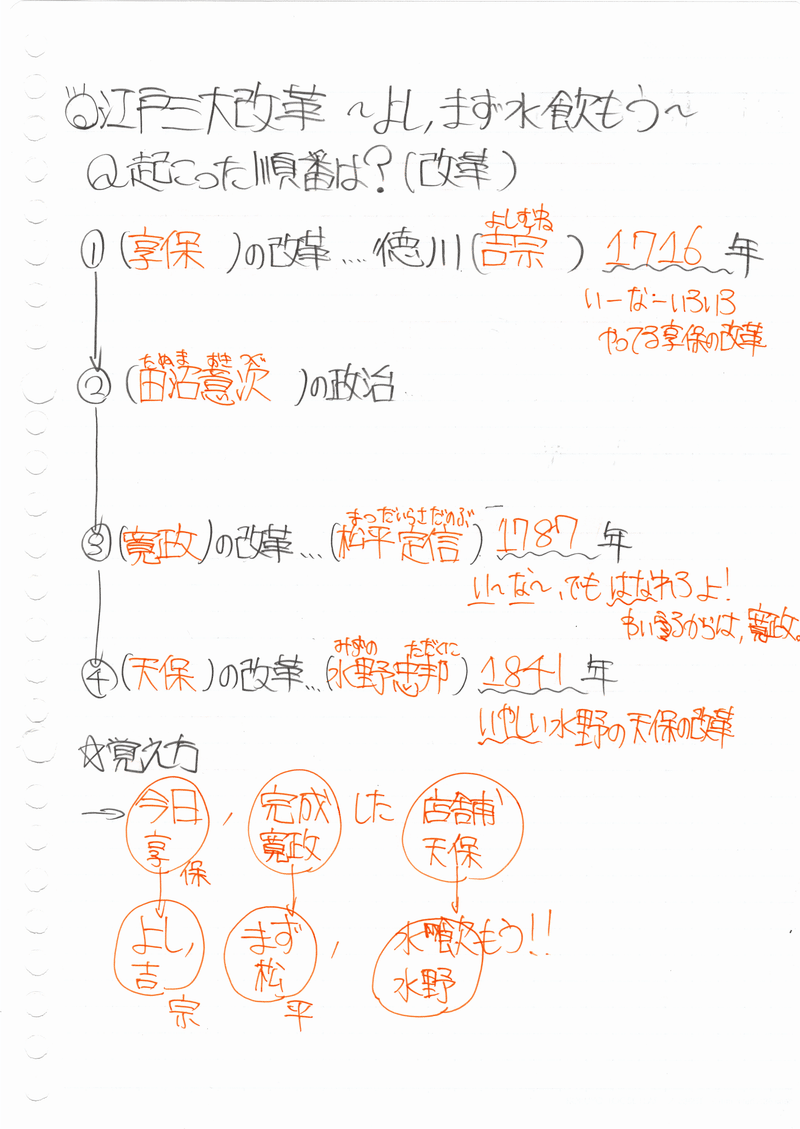 ◎江戸三大改革 ～よし,まず水飲もう～
Q起こった順番は?(改革)
よしむね
① (享保 )の改革…. 徳川(吉宗 ) 1716 年
いーなーいろいろ
やってる享保の改革
たぬま おきつぐ
② (田沼意次 )の政治
まつだいらさだのぶ
③ (寛政)の改革…(松平定信) 1787 年
い～な～、でもはなれろよ!
からは,寛政。
みずの ただくに
④ (天保 )の改革…(水野忠邦) 1841 年
いやしい水野の天保の改革
☆覚え方
→ 今日, 完成 した 店舗
享保 寛政 天保
よし, まず, 水飲もう!!
吉宗 松平 水野